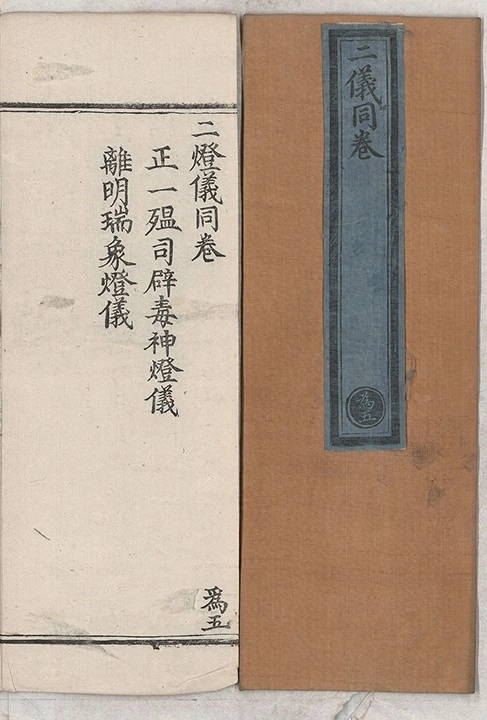 二儀同卷
為五
二燈儀同卷
正一殟司辟毒神燈儀
離明瑞象燈儀
為五